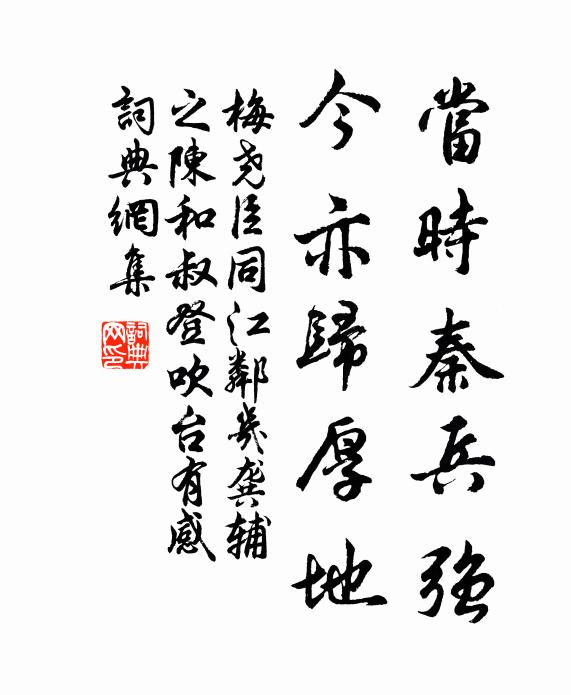 當時秦兵强
今亦歸厚地
梅尧臣同江鄰幾龚辅
之陳和叔登吹台有感
詞典網集
詞典
网印